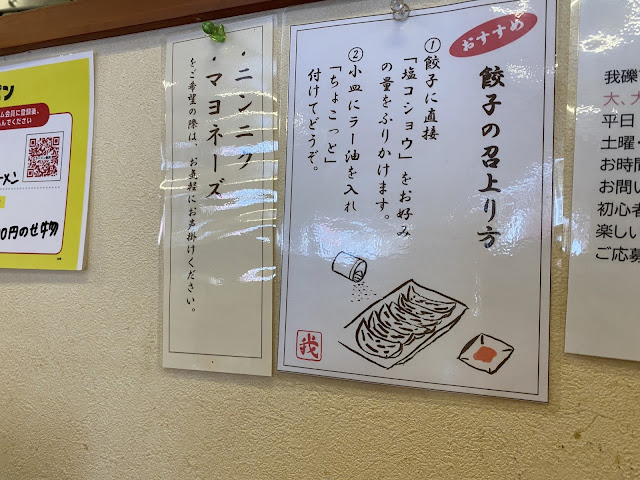 おすすめ
餃子の召上り方
①餃子に直接
「塩コショウ」をお好み
の量をふりかけます。
②小皿にラー油を入れ
「ちょこっと」
付けてどうぞ。
我
・ニンニク
・マヨネーズ
をご希望の際は、お気軽にお声掛けください。
ム会員に登録後、
んでください
ーメン
0円のせ放
我礫
大、
平日
土曜・
お時間
お問い
初心者
楽しい
ご応募